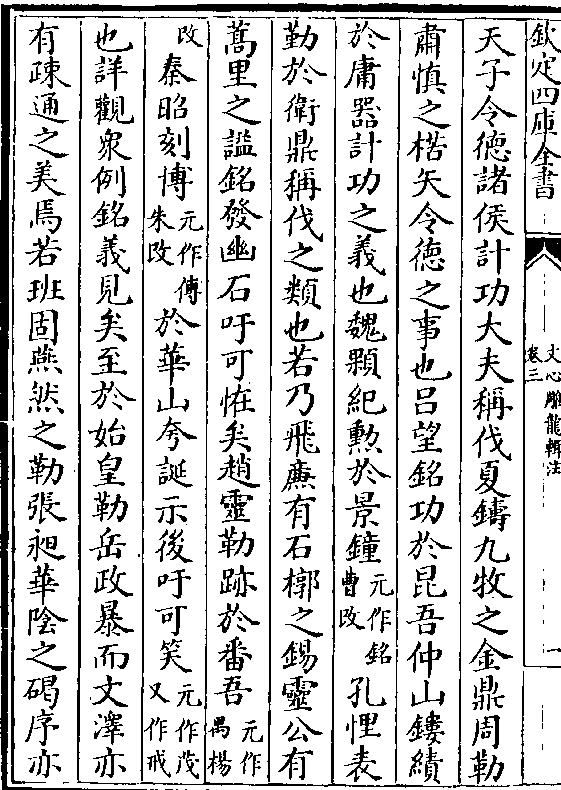 欽定四庫全書
文心雕龍輯注
卷三
一
天子令德諸侯計功大夫稱伐夏鑄九牧之金鼎周勒
肅慎之楛矢令德之事也呂望銘功於昆吾仲山鏤績
於庸器計功之義也魏顆紀勲於景鐘元作銘曹改孔悝表
勤於衛鼎稱伐之類也若乃飛廉有石槨之錫靈公有
蒿里之諡銘發幽石吁可怪矣趙靈勒跡於番吾元作禺楊
改秦昭刻博元作傅朱改於華山夸誕示後吁可笑元作茂又作戒
也詳觀衆例銘義見矣至於始皇勒岳政暴而文澤亦
有疎通之美焉若班固燕然之勒張昶華陰之碣序亦